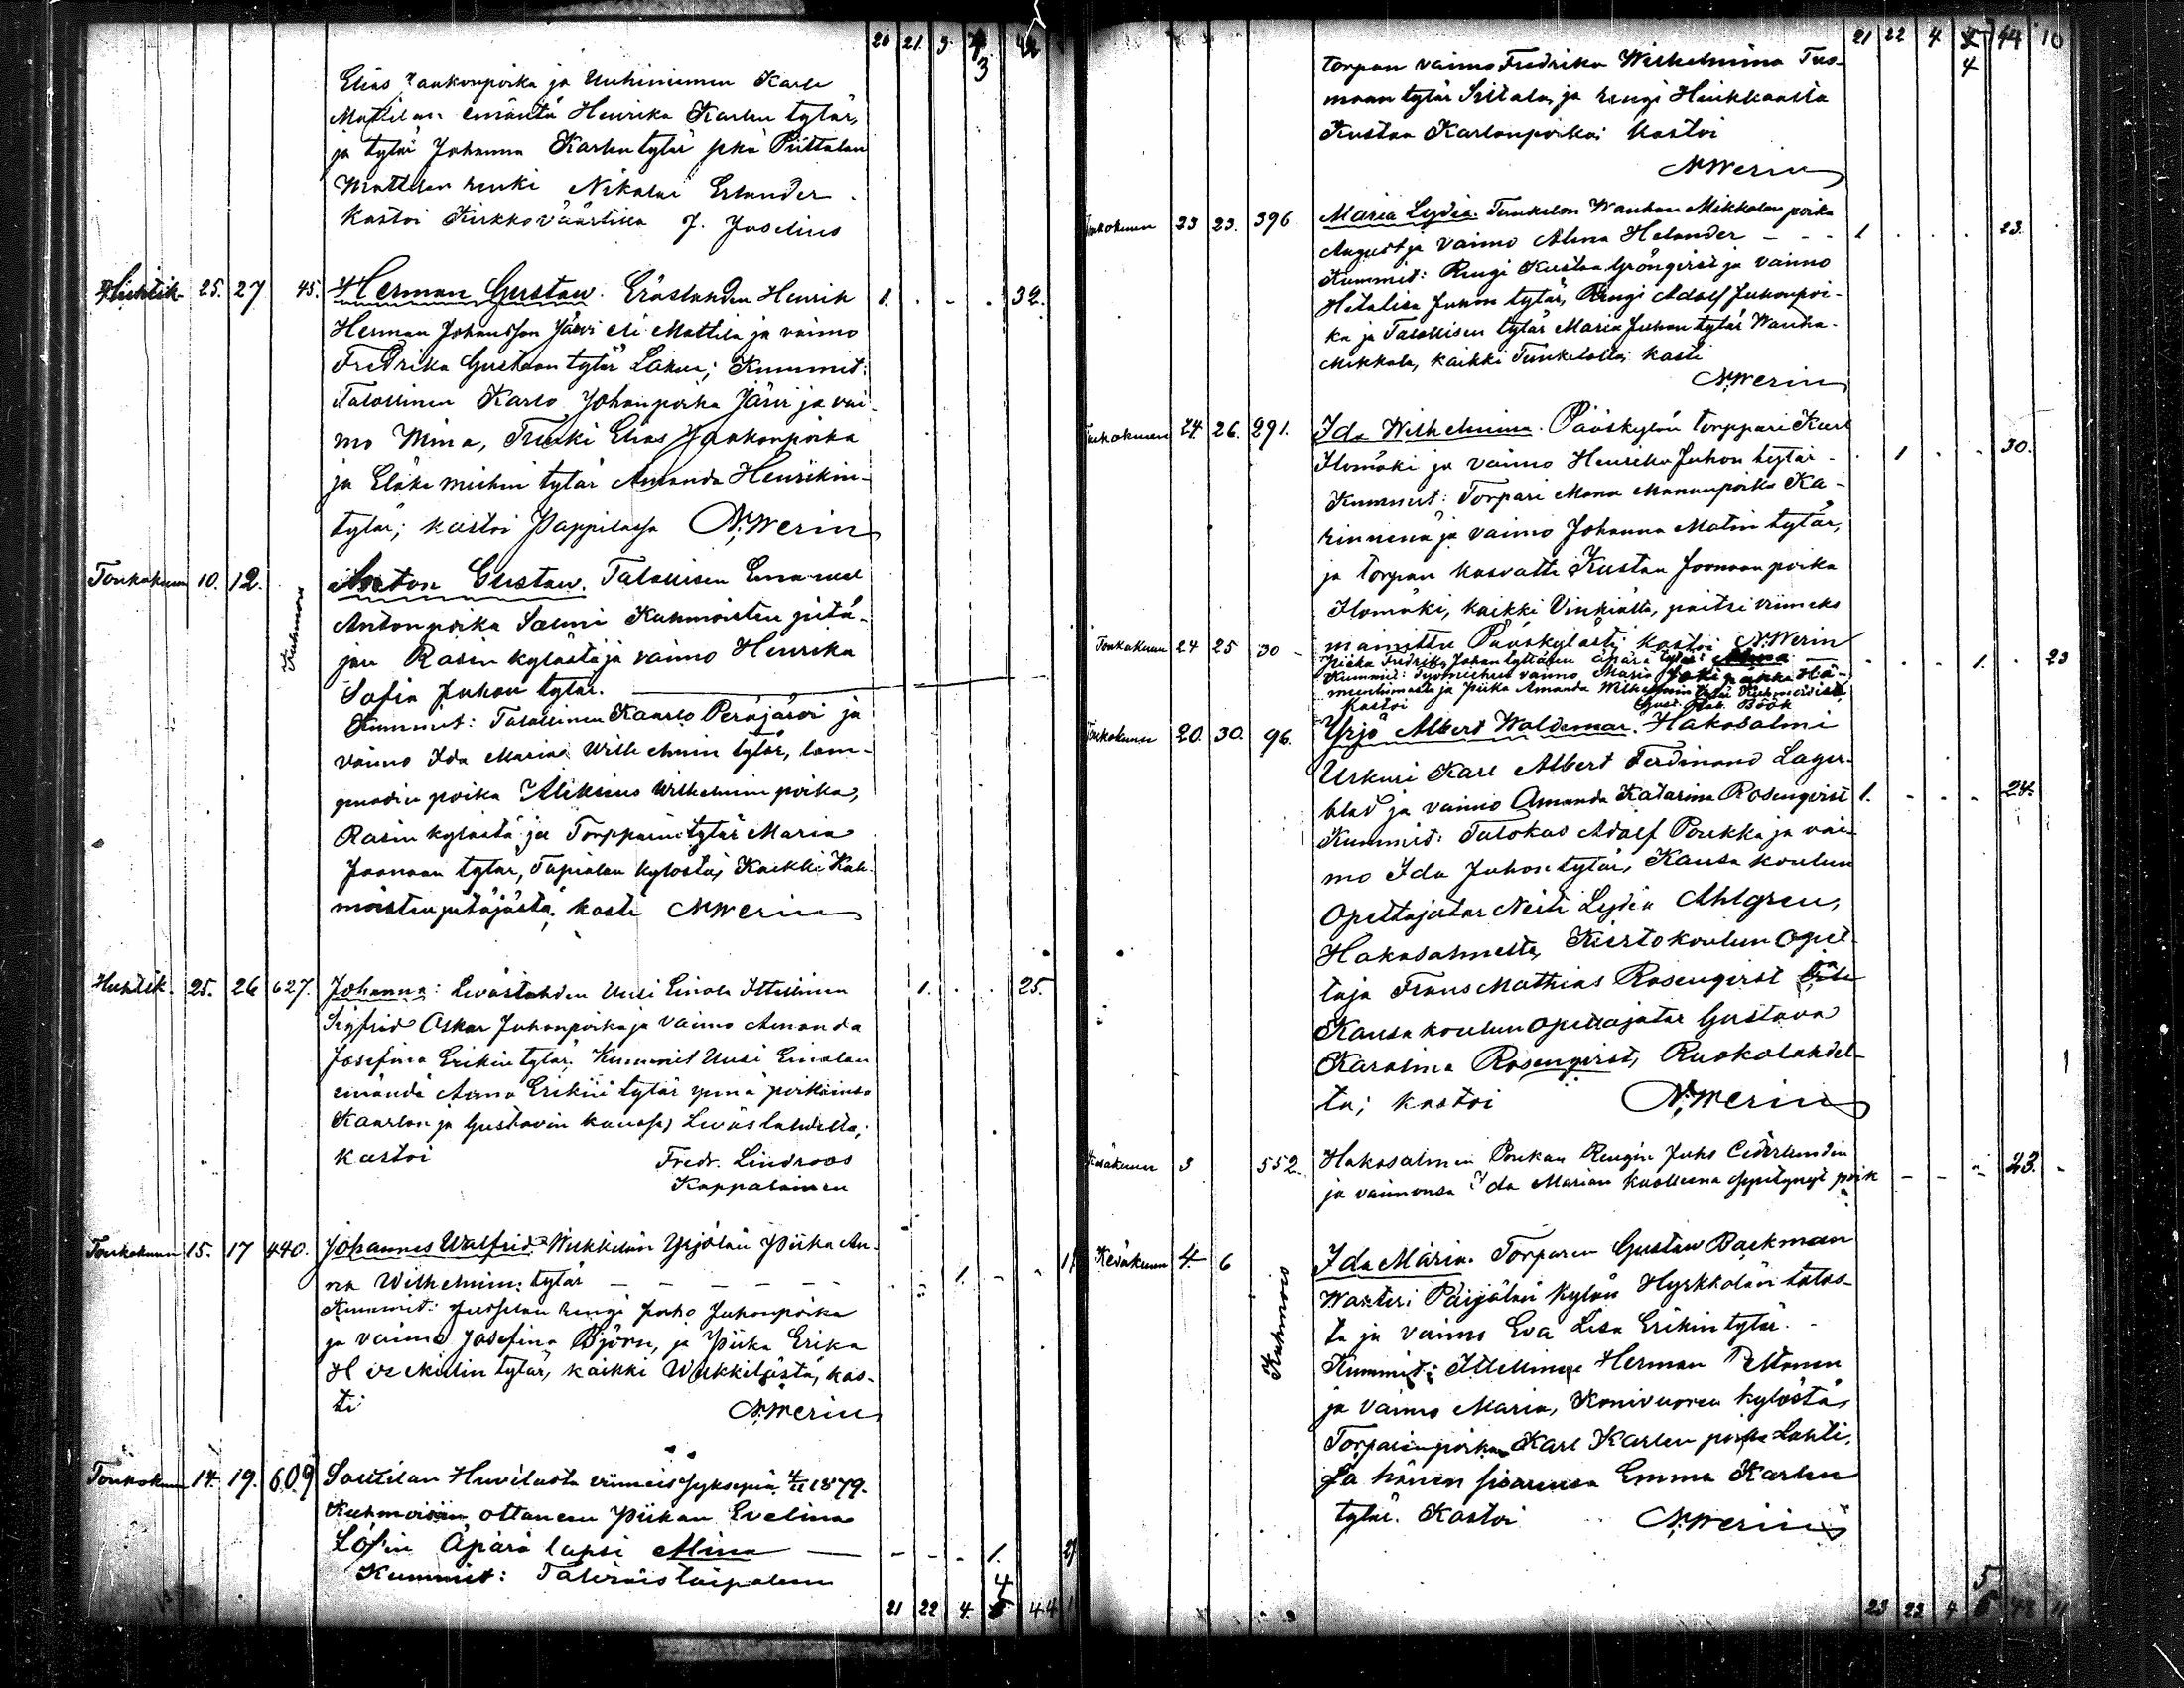 20 21. 3.
3
Elias Jaakonpoika ja Uuhiniemen Karle
Mattilan emäntä Henrika Karlen tytär,
ja tytär Johanna Karlen tytär Piittalan
Mattilan renki Nikolai Erlander.
Kastoi Kirkkoväärtiltä J. Joselius
Huhtik. 25. 27 45. Herman Gustaw. Eräslahden Henrik 1. . - . 32.
Herman Johansson Järvi eli Mattila ja vaimo
Fredrika Gustaan tytär Lakea; Kummit:
Talollinen Karlo Johanpoika Järvi ja vai-
mo Mina, Trenki Elias Jaakonpoika
ja Eläke miehen tytär Amanda Henrikin-
tytär; kastoi Pappilassa N. Merin
Toukokuun 10. 12. Kuhmois
Anton Gustaw. Talollisen Emanuel
Antonpoika Salmi Kuhmoisten pitä-
jän Rasin kylästä ja vaimo Henrika
Sofia Juhon tytär.
Kummit: Talollinen Kaarlo Peräjärvi ja
vaimo Ida Maria Wilhelmin tytär, lam-
puodin poika Aleksius Wilhelmin poika,
Rasin kylästä ja Torpparin tytär Maria
Joonaan tytär, Tapialan kylästä, Kaikki Kuh-
moisten pitäjästä; kasti N. Merin
Huhtik. 25. 26 627. Johanna: Leväslahden Uusi Einola Itsellinen 1. . . 25.
Sigfrid Oskar Juhonpoika ja vaimo Amanda
Josefina Erikin tytär; Kummit Uusi Einolan
emändä Anna Erikin tytär ynnä poikainsa
Kaarlon ja Gustavin kanssa, Leväslahdelta;
kastoi Fredr. Lindroos
Kappalainen
Toukokuun 15. 17 440. Johannes Walfrid. Wekkilän Yrjölän Piika An-
na Wilhelmin tytär - - - - - 1. - -
Kummit: Jussilan rengi Juho Juhonpoika
ja vaimo Josefina Björn, ja Piika Erika
Heikillin tytär, kaikki Wekkilästä, kas-
ti N. Merin
Toukokuun 14. 19. 609 Soutilan Huvilasta viimeis syksynä 1879.
Kuhmoisiin ottaneen Piikan Evelina
Löf'in Äpärä lapsi Alina - - - - 1.
Kummit: Taivaistaipaleen
4
21 22 4. 5 44
21 22 4 44 10
4
torpan vaimo Fredrika Wilhelmina Tuo-
maan tytär Siltala, ja rengi Heikkaasta
Kustaa Karlonpoika; Kastoi
N. Merin
Toukokuun 23 23. 396. Maria Lydia. Tunkelon Wanhan Mikkolan poika
August ja vaimo Alma Helander - - - 1 . . . 23.
Kummit: Rengi Kustaa Grönqvist ja vaimo
Hetaliisa Juhon tytär, Rengi Adolf Juhonpoi-
ka ja Talollisen tytär Maria Juhon tytär Wanha-
Mikkola, kaikki Tunkelolta; kasti
N. Merin
Toukokuun 24. 26. 291. Ida Wilhelmina. Pääskylän torppari Karl
Ilomäki ja vaimo Henrika Juhon tytär - . 1 . . 30.
Kummit: Torpari Manu Manunpoika Ka-
rinnenä ja vaimo Johanna Matin tytär,
ja torpan kasvatti Kustaa Joonaan poika
Ilomäki, kaikki Vinkiältä, paitsi viimeks
mainittu Pääskylästä; kastoi N. Merin
Toukokuun 24 25 30 - Piika Fredrika Johan tyttären äpärä tytär: Alma - . . . 1. . 23
Kummit: Työmiehen vaimo Maria Jokipakka Hä-
meenlinnasta ja Piika Amanda Wilhelmin tytär Kuhmoisista
Kastoi Gust. Böök
Toukokuun 20. 30. 96. Yrjö Albert Waldemar. Hakosalmi
Urkuri Karl Albert Ferdinand Lager-
blad ja vaimo Amanda Katarina Rosenqvist 1. - - - 24.
Kummit: Talokas Adolf Poukka ja vai-
mo Ida Juhontytär, Kansa koulun
Opettajatar Neiti Lydia Ahlgren,
Hakosalmelta, Kiertokoulun Opet-
taja Frans Mathias Rosenqvist
Kansakoulun opettajatar Gustava
Karolina Rosenqvist, Ruokolahdel-
ta; kastoi N. Merin
Kesäkuun 3 552. Hakosalmen Poukan Rengin Juho Cederlundin
ja vaimonsa Ida Marian kuolleena syntynyt poik - - - 23. -
Kesäkuun 4 6 Kuhmois
Ida Maria. Torparin Gustaw Backman
Warteri Päijälän kylän Hyrkkölän talos-
ta ja vaimo Eva Lisa Erikin tytär. -
Kummit: Itsellinen Herman Peltonen
ja vaimo Maria, Konivuoren kylästä,
Torparinpoika Karl Karlen poika Lahti,
Ja hänen sisarensa Emma Karlen
tytär. Kastoi N. Merin
5
23 23 4 6 48 11